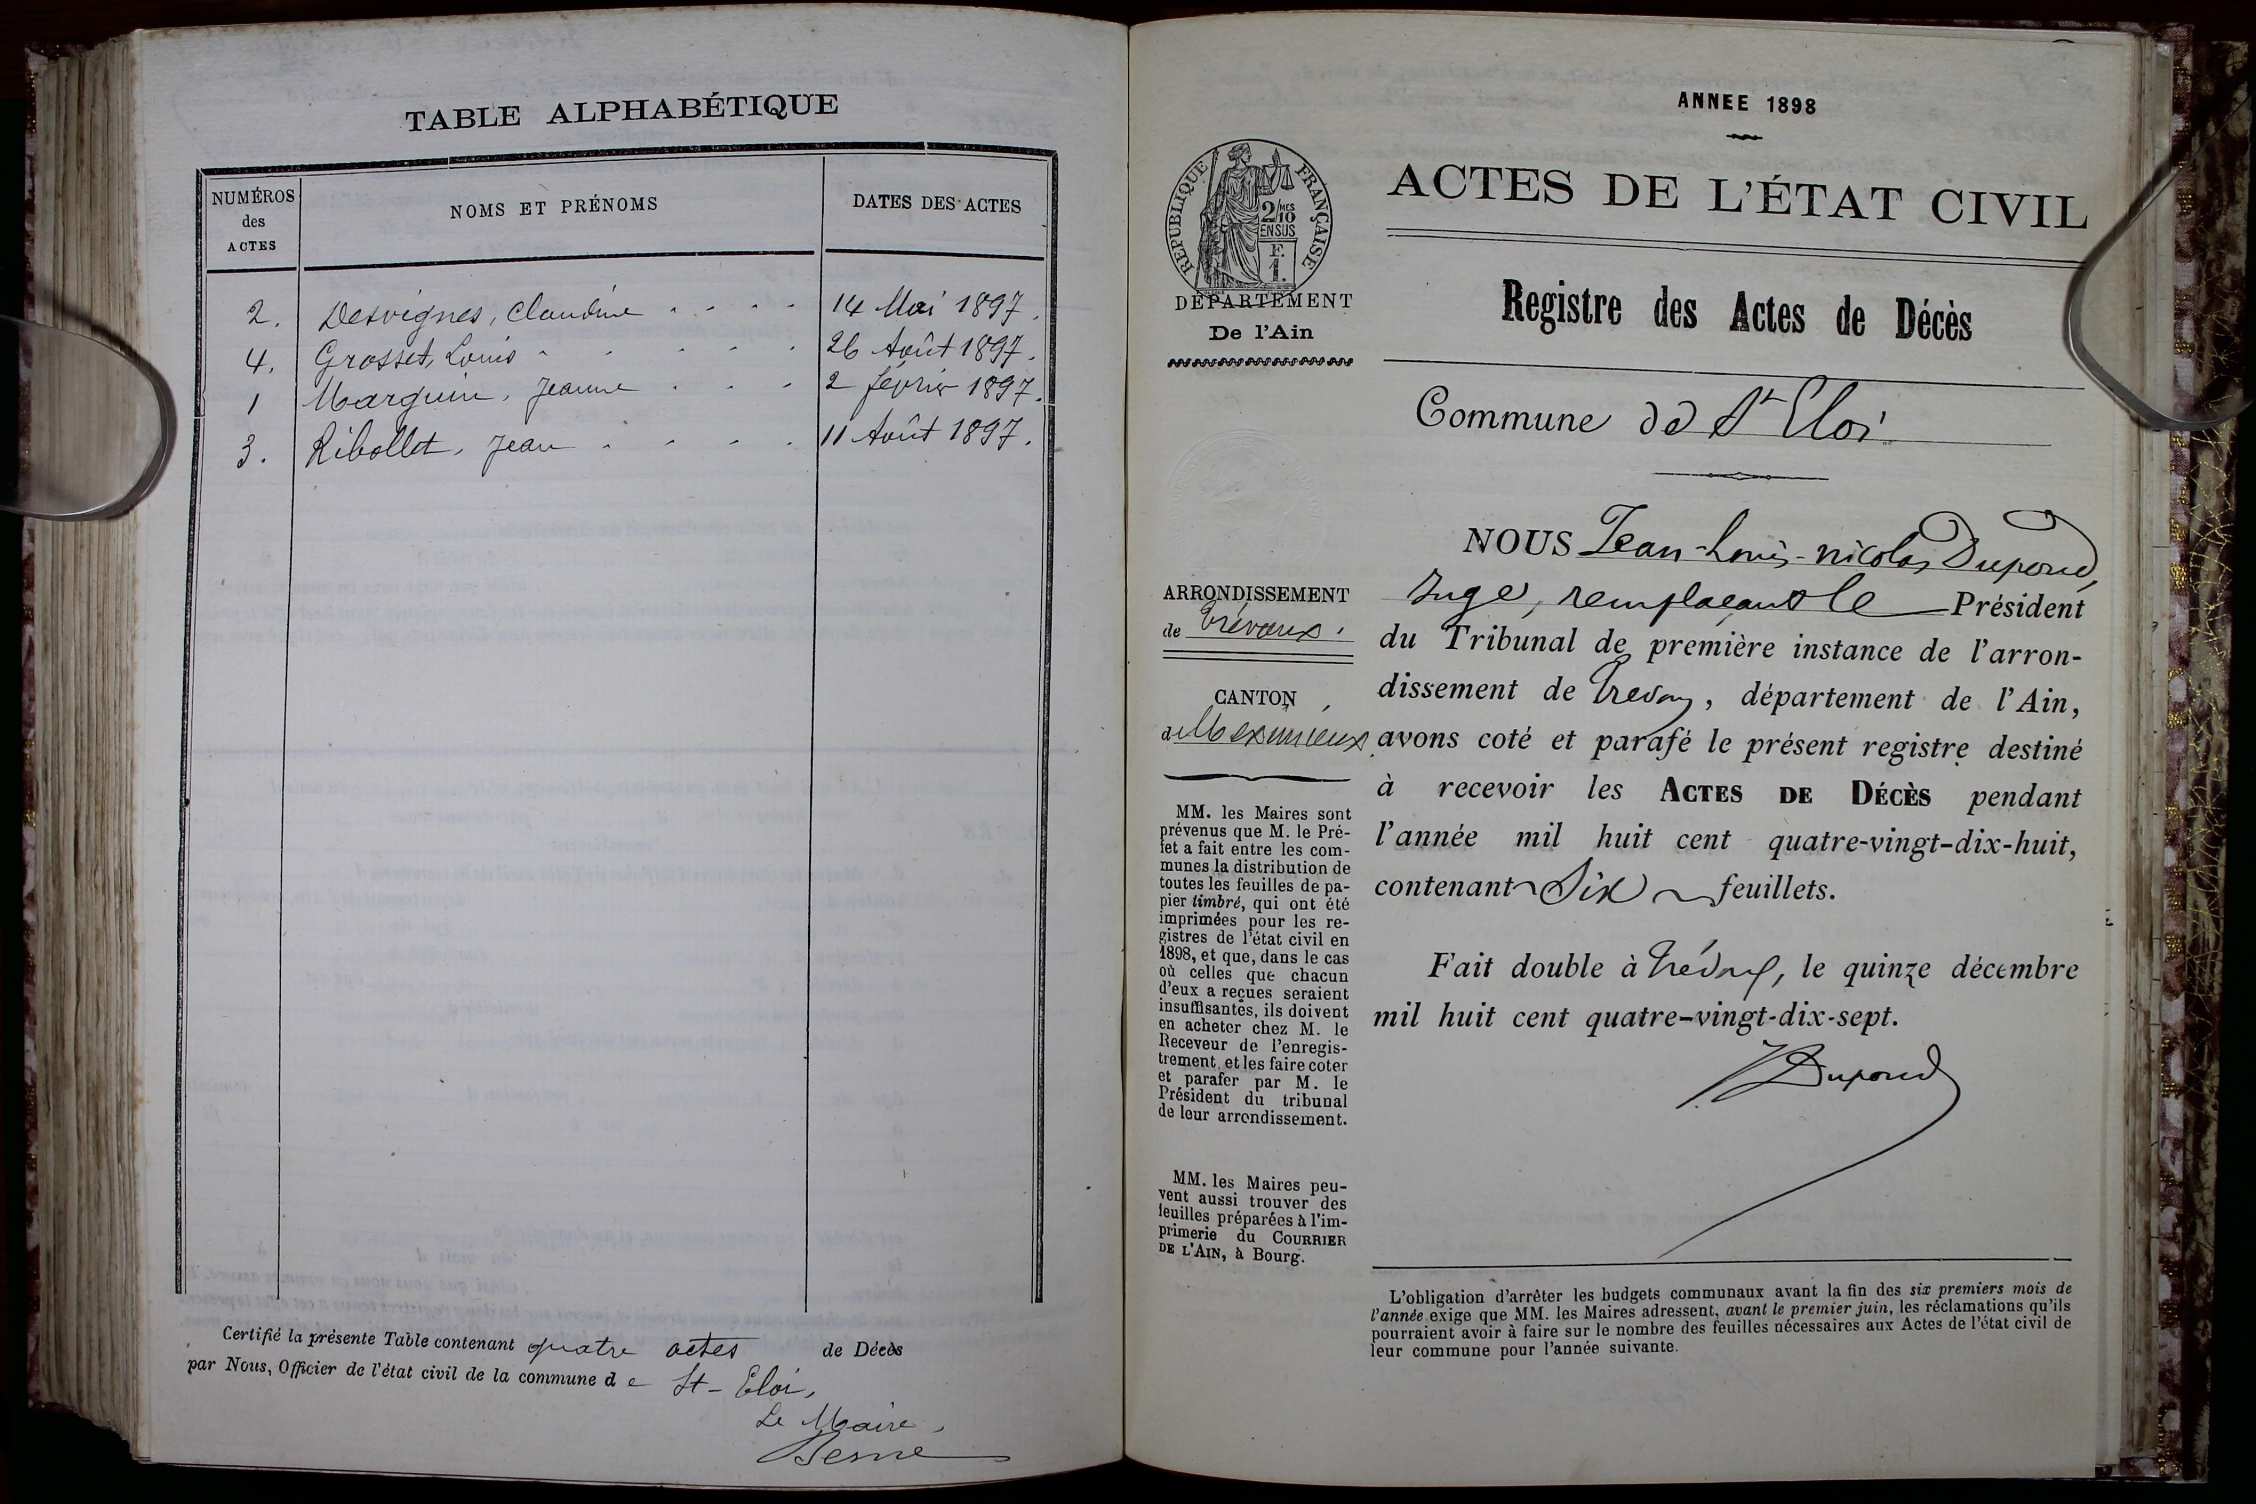 TABLE ALPHABÉTIQUE
NUMÉROS
des
ACTES
NOMS ET PRÉNOMS
DATES DES ACTES
2. Desvignes, Claudine . . . . 14 Mai 1897.
4. Grosset, Louis . . . . . 26 Août 1897.
1 Marguin, Jeanne . . . 2 février 1897.
3. Ribollet, Jean . . . . 11 Août 1897.
Certifié la présente Table contenant quatre actes de Décès
par Nous, Officier de l'état civil de la commune de St-Eloi,
Le Maire,
ANNEE 1898
RÉPUBLIQUE FRANÇAISE
2/10
MES
EN SUS
F.
1.
DÉPARTEMENT
De l'Ain
ARRONDISSEMENT
de Trévoux.
CANTON
de Meximieux
MM. les Maires sont
prévenus que M. le Pré-
fet a fait entre les com-
munes la distribution de
toutes les feuilles de pa-
pier timbré, qui ont été
imprimées pour les re-
gistres de l'état civil en
1898, et que, dans le cas
où celles que chacun
d'eux a reçues seraient
insuffisantes, ils doivent
en acheter chez M. le
Receveur de l'enregis-
trement, et les faire coter
et parafer par M. le
Président du tribunal
de leur arrondissement.
MM. les Maires peu-
vent aussi trouver des
feuilles préparées à l'im-
primerie du COURRIER
DE L'AIN, à Bourg.
ACTES DE L'ÉTAT CIVIL
Registre des Actes de Décès
Commune de St Eloi
NOUS Jean-Louis-nicolas Dupond,
Juge, remplaçant le Président
du Tribunal de première instance de l'arron-
dissement de Trévoux, département de l'Ain,
avons coté et parafé le présent registre destiné
à recevoir les ACTES DE DÉCÈS pendant
l'année mil huit cent quatre-vingt-dix-huit,
contenant Six feuillets.
Fait double à Trévoux, le quinze décembre
mil huit cent quatre-vingt-dix-sept.
Dupond
L'obligation d'arrêter les budgets communaux avant la fin des six premiers mois de
l'année exige que MM. les Maires adressent, avant le premier juin, les réclamations qu'ils
pourraient avoir à faire sur le nombre des feuilles nécessaires aux Actes de l'état civil de
leur commune pour l'année suivante.